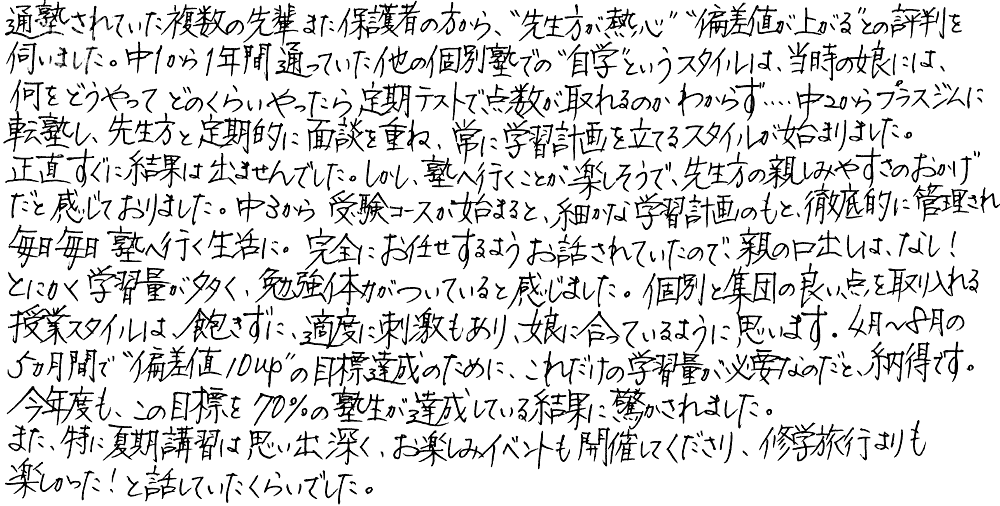 通塾されていた複数の先輩また保護者の方から、“先生方が熱心”“偏差値が上がる”との評判を
伺いました。中1から1年間通っていた他の個別塾での“自学”というスタイルは、当時の娘には、
何をどうやってどのくらいやったら定期テストで点数が取れるのかわからず‥‥中2からプラスジムに
転塾し、先生方と定期的に面談を重ね、常に学習計画を立てるスタイルが始まりました。
正直すぐに結果は出ませんでした。しかし、塾へ行くことが楽しそうで、先生方の親しみやすさのおかげ
だと感じておりました。中3から受験コースが始まると、細かな学習計画のもと、徹底的に管理され
毎日毎日塾へ行く生活に。完全にお任せするようお話されていたので、親の口出しは、なし！
とにかく学習量が多く、勉強体力がついていると感じました。個別と集団の良い点を取り入れる
授業スタイルは、飽きずに、適度に刺激もあり、娘に合っているように思います。4月〜8月の
5ヵ月間で“偏差値10up”の目標達成のために、これだけの学習量が必要なのだと、納得です。
今年度も、この目標を70%の塾生が達成している結果に驚かされました。
また、特に夏期講習は思い出深く、お楽しみイベントも開催してくださり、修学旅行よりも
楽しかった！と話していたくらいでした。